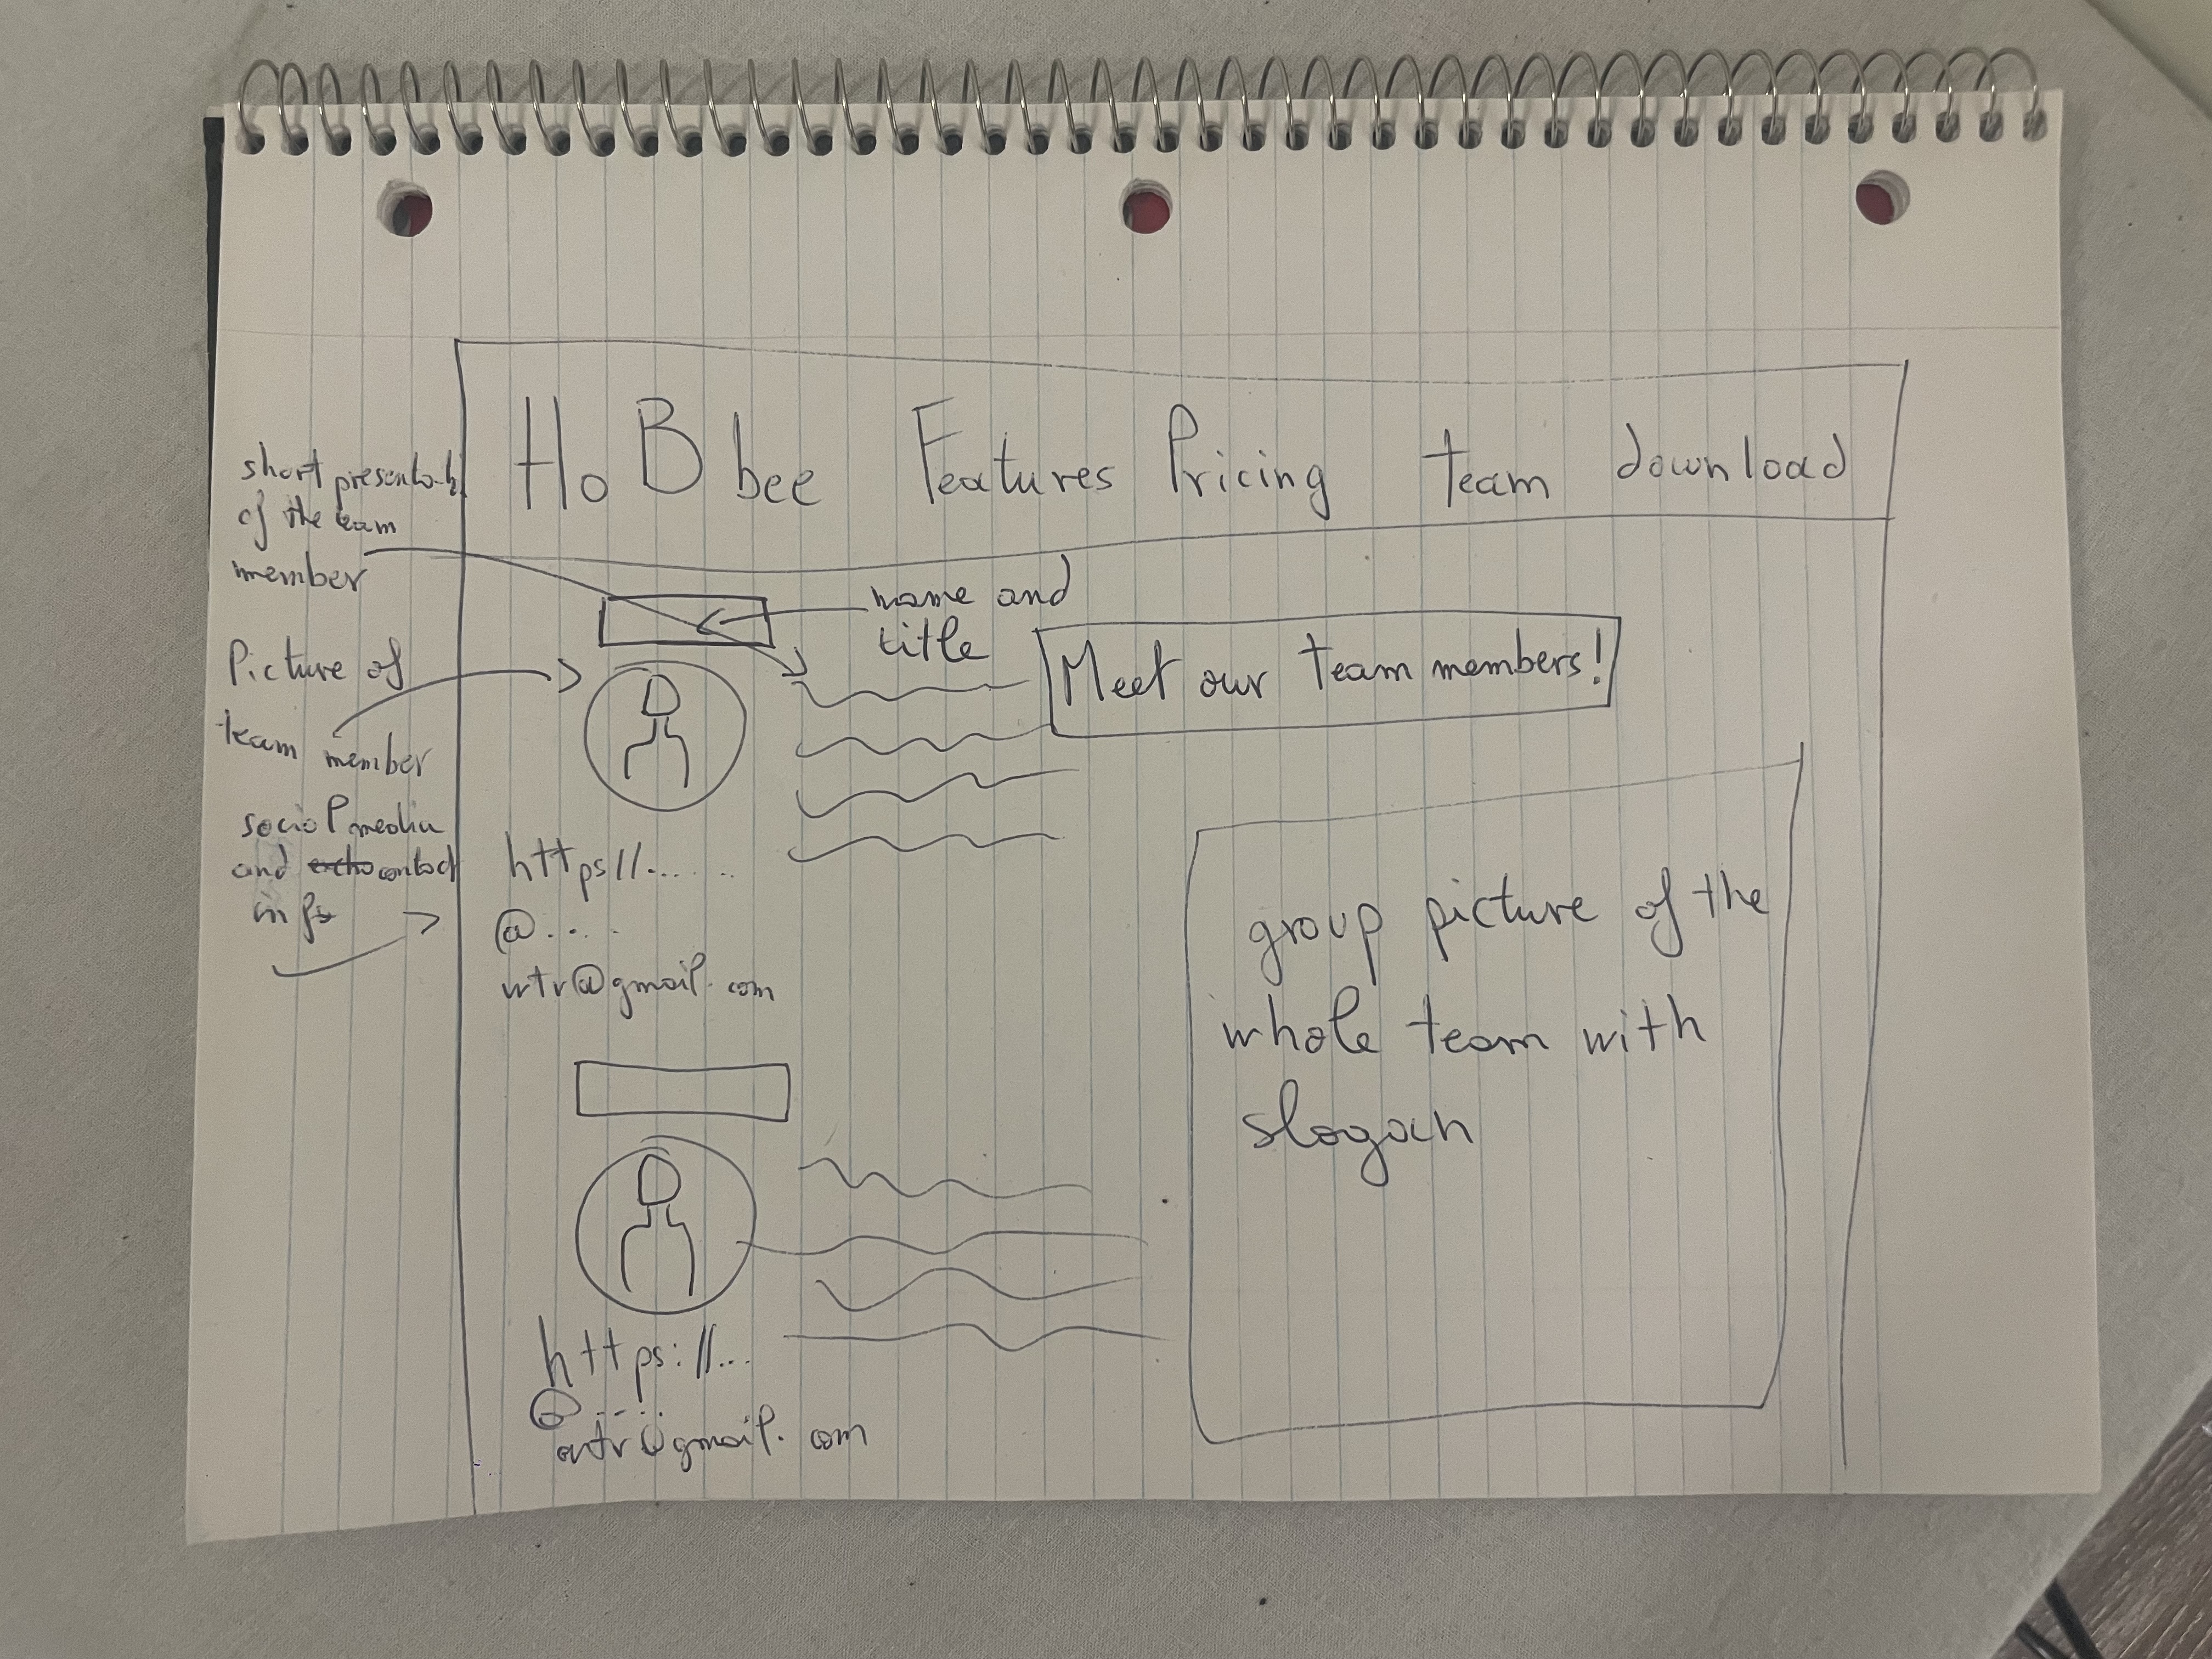 HoBbee Features Pricing team download
short presentati
of the team
member
Picture of
team member
social media
and contact
info
name and
title
Meet our team members!
https//......
@....
mtv@gmail.com
group picture of the
whole team with
slogan
https://...
@...
mtv@gmail.com